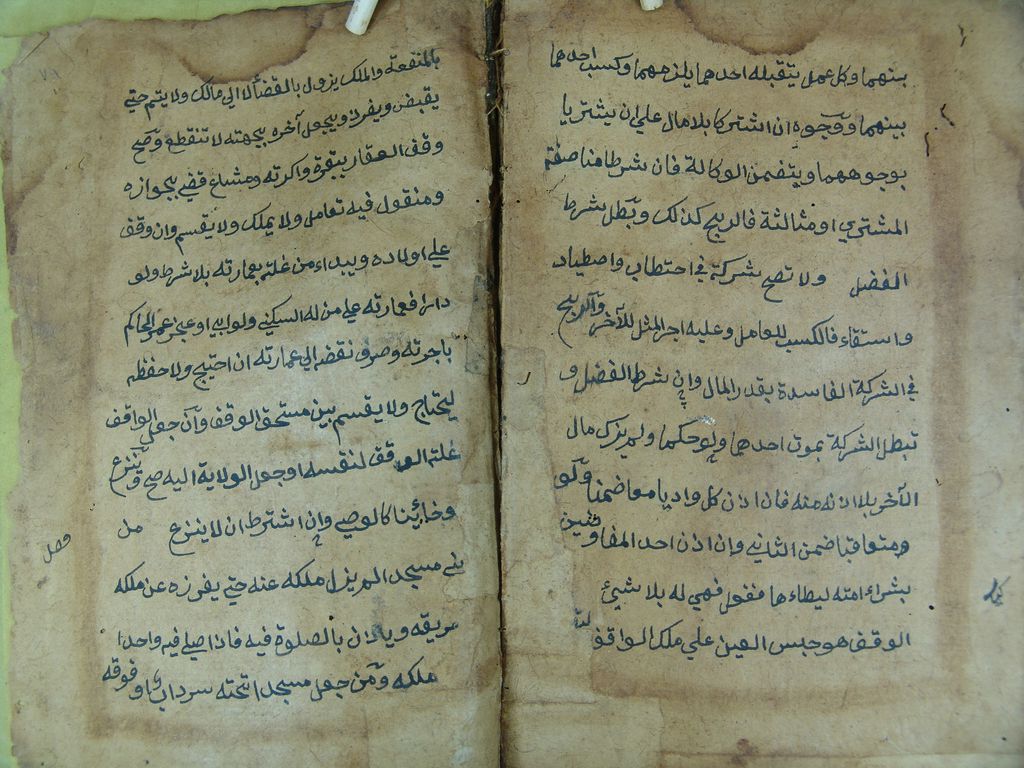 بينهما وكل عمل يتقبله احدهما يلزمهما وكسب احدهما
بينهما ووجوه ان اشتركا بلا مال علي ان يشتريا
بوجوههما ويتضمن الوكالة فان شرطا مناصفة
المشتري او مثالثة فالربح كذلك وبطل شرط
الفضل ولا تصح شركة في احتطاب واصطياد
واستقاء فالكسب للعامل وعليه اجر المثل للآخر والربح
في الشركة الفاسدة بقدر المال وان شرط الفضل و
تبطل الشركة بموت احدهما ولو حكما ولم يزك مال
الآخر بلا اذنه منه فان اذن كل واديا معا ضمنا ولو
ومتعاقبا ضمن الثاني وان اذن احد المفاوضين
بشراء امته ليطاءها ففعل فهي له بلا شيئ
الوقف هو حبس العين علي ملك الواقف
بالمنفعة والملك يزول بالقضاء لا الي مالك ولا يتم حتي
يقبض ويفرز ويجعل آخره بجهته لا تنقطع وصح
وقف العقار ببقره واكرته ومشاع قضي بجوازه
ومنقول فيه تعامل ولا يملك ولا يقسم وان وقف
علي اولاده ويبداء من غلته بعمارته بلا شرط ولو
دارا فعمارته علي من له السكني ولو ابي او عجز عمر الحاكم
باجرته وصرف نقضه الي عمارته ان احتيج ولا حفظه
ليحتاج ولا يقسم بين مستحق الوقف وان جعل الواقف
غلته الوقف لنفسه او جعل الولاية اليه صح وينزع
وخائنا كالوصي وان اشترط ان لا ينزع من
فصل
بني مسجدا لم يزل ملكه عنه حتي يفرزه عن ملكه
بطريقه وياذن بالصلوة فيه فاذا صلي فيه واحدا
ملكه ومن جعل مسجدا تحته سرداب او فوقه